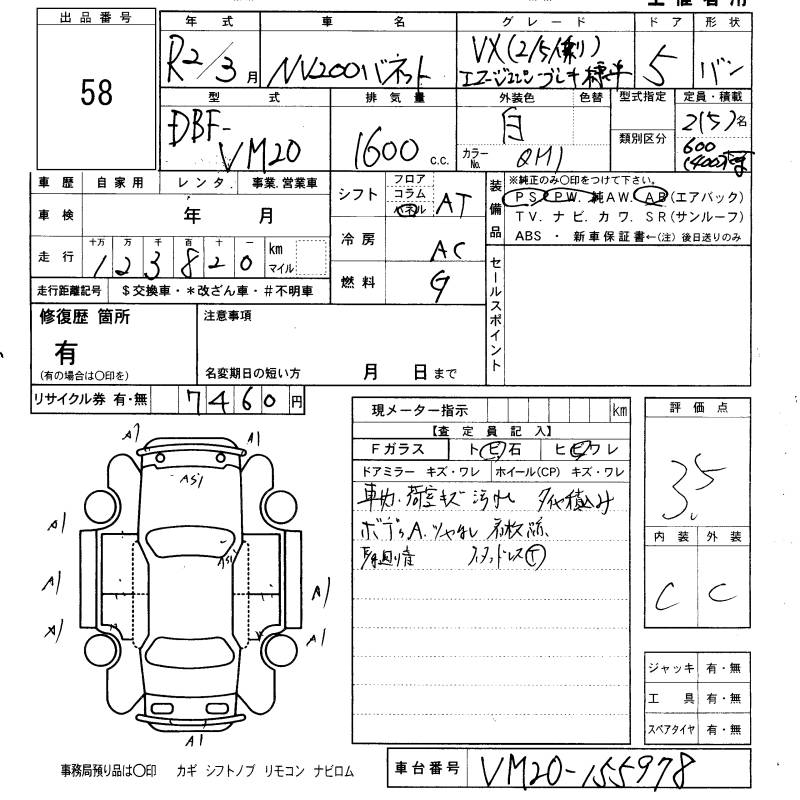 出品番号
58
年式
R2/3月
車名
NV200バネット
グレード
VX(2/5人乗り)
エマージェンシーブレーキ 標準
ドア
5
形状
バン
型式
DBF-
VM20
排気量
1600 c.c.
外装色
白
色替
カラーNo.
QM1
型式指定
類別区分
定員・積載
2(5)名
600
(400)
車歴 自家用 レンタ. 事業.営業車
車検 年 月
走行 十万 万 千 百 十 一 km マイル
1 2 3 8 2 0
走行距離記号 $交換車・*改ざん車・#不明車
シフト フロア コラム AT
冷房 AC
燃料 G
装備品
※純正のみ〇印をつけて下さい。
PS. PW. 純AW. AB(エアバック)
TV. ナビ. カワ. SR(サンルーフ)
ABS ・ 新車保証書←(注)後日送りのみ
セールスポイント
修復歴 箇所
有
(有の場合は〇印を)
注意事項
名変期日の短い方 月 日まで
リサイクル券 有・無 7460円
現メーター指示 km
【査定員記入】
Fガラス ト ビ 石 ヒビワレ
ドアミラー キズ・ワレ ホイール(CP) キズ・ワレ
車内、荷室キズ 汚れ タイヤ積込み
ボデーA、ツヤなし
スタッドレス
評価点
3.5
内装 外装
C C
ジャッキ 有・無
工具 有・無
スペアタイヤ 有・無
A1 A1
AS1
A1
AS1
A1 A1
A1 A1
A1
事務局預り品は〇印 カギ シフトノブ リモコン ナビロム
車台番号 VM20-155978